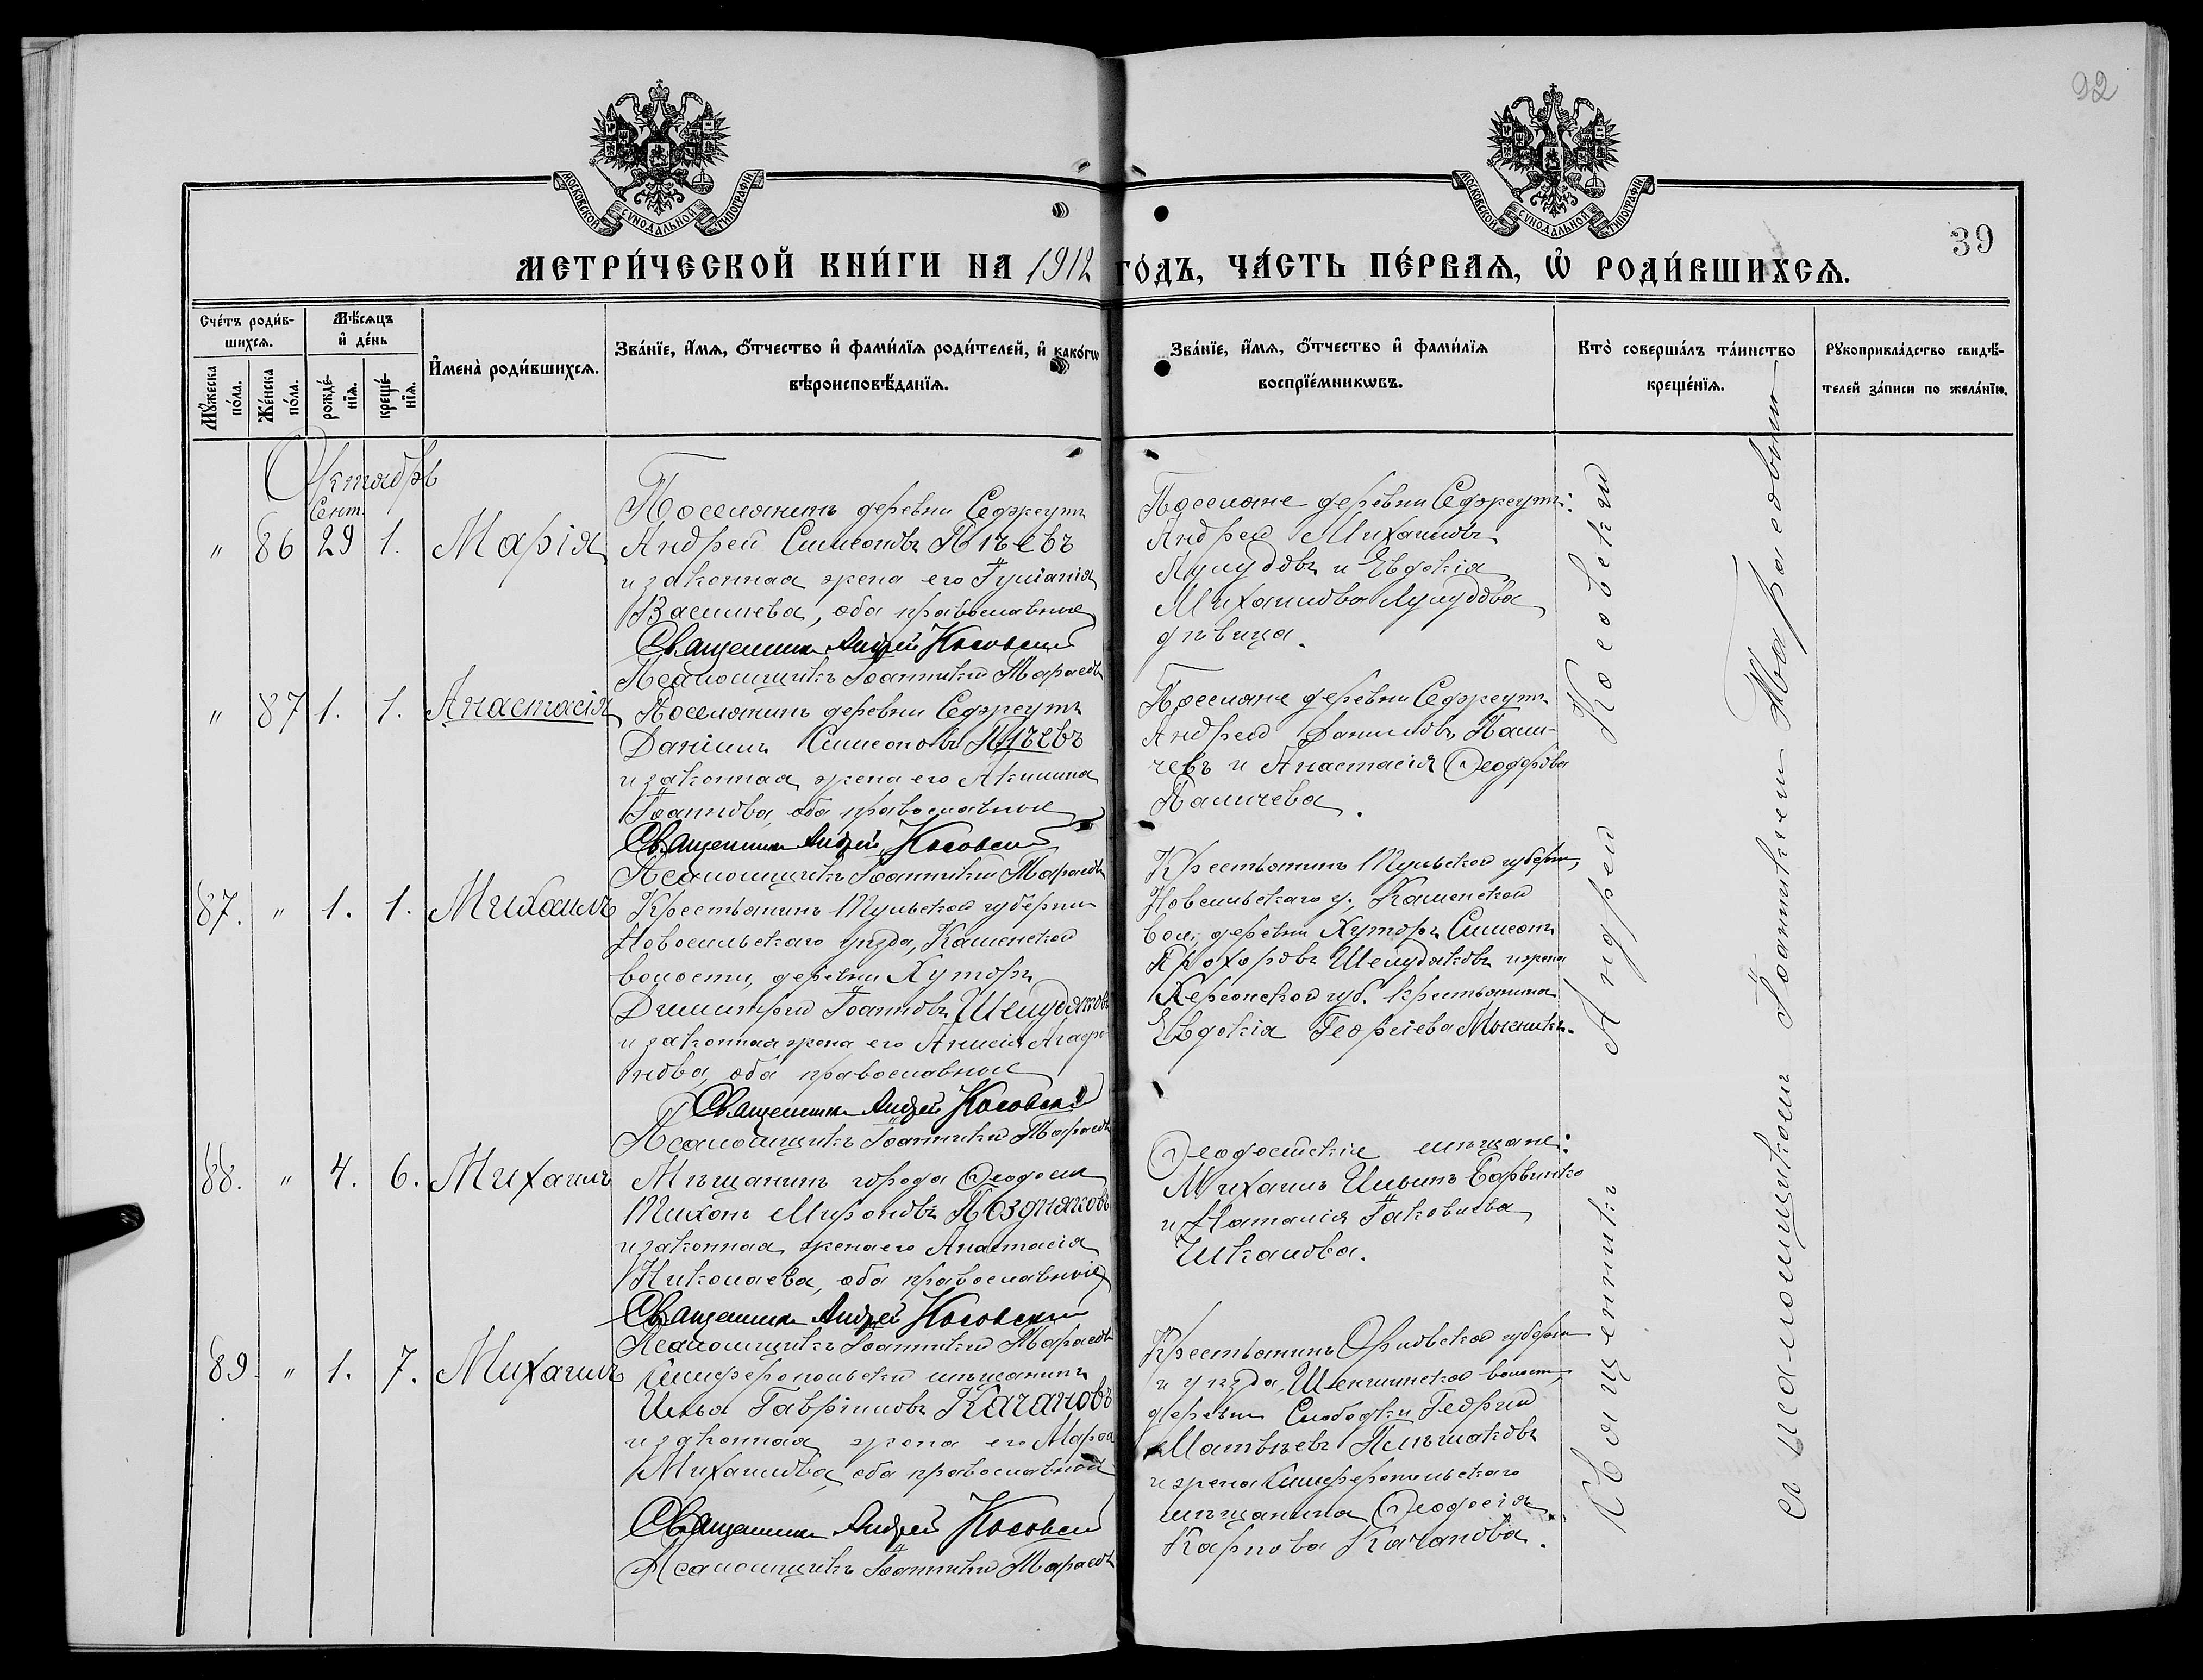 92
МОСКОВСКОЙ СѴНОДАЛЬНОЙ ТИПОГРАФІИ
МОСКОВСКОЙ СѴНОДАЛЬНОЙ ТИПОГРАФІИ
39
МЕТРИ́ЧЕСКОЙ КНИ́ГИ НА 1912 ГО́ДЪ, ЧА́СТЬ ПЕ́РВАѦ, Ѡ҆ РОДИ́ВШИХСѦ.
Сче́тъ роди́в-
шихся.
Мѣ́сяцъ
и҆ де́нь
Мꙋ́жеска по́ла.
Же́нска по́ла.
рожде́-нїя.
креще́-нїя.
И҆мена̀ роди́вшихся.
Зва́нїе, и҆́мя, ѻ҆́тчество и҆ фами́лїя роди́телей, и҆ како́гѡ
вѣроисповѣ́данїя.
Зва́нїе, и҆́мя, ѻ҆́тчество и҆ фами́лїя
воспрїе́мникѡвъ.
Кто̀ соверша́лъ та́инство
креще́нїя.
Рꙋкоприкла́дство свидѣ́-
телей за́писи по жела́нїю.
Октябрь
Сент.
" 86 29 1. Марія
Поселянинъ деревни Седжеутъ
Андрей Симеоновъ
и законная жена его Іуліанія
Васильева, оба православные
Священникъ Андрей Косовскій
Псаломщикъ Іоанникій Тарасовъ
Поселяне деревни Седжеутъ:
Андрей Михаиловъ
и Евдокія
Михаилова
дѣвица.
" 87 1. 1. Анастасія
Поселянинъ деревни Седжеутъ
Даніилъ Симеоновъ
и законная жена его Акилина
Іоаннова, оба православные
Священникъ Андрей Косовскій
Псаломщикъ Іоанникій Тарасовъ
Поселяне деревни Седжеутъ
Андрей Даниловъ Пали-
чевъ и Анастасія Ѳеодорова
Паличева.
87. " 1. 1. Михаилъ
Крестьянинъ Тульской губерніи
Новосильскаго уѣзда, Каменской
волости, деревни Хуторъ
Димитрій Іоанновъ Шелудяковъ
и законная жена его Анисія Агафо-
нова, оба православные
Священникъ Андрей Косовскій
Псаломщикъ Іоанникій Тарасовъ
Крестьянинъ Тульской губерн.,
Новосильскаго у., Каменской
вол., деревни Хуторъ Симеонъ
Прохоровъ Шелудяковъ и жена
Херсонской губ. крестьянина
Евдокія Георгіева
88. " 4. 6. Михаилъ
Мѣщанинъ города Ѳеодосіи
Тихонъ Мироновъ Поздняковъ
и законная жена его Анастасія
Николаева, оба православные
Священникъ Андрей Косовскій
Псаломщикъ Іоанникій Тарасовъ
Ѳеодосійскіе мѣщане:
Михаилъ Ильинъ
и Наталія Іаковлева
Шкалова.
89. " 1. 7. Михаилъ
Симферопольскій мѣщанинъ
Илья Гавріиловъ Качановъ
и законная жена его Марѳа
Михаилова, оба православные
Священникъ Андрей Косовскій
Псаломщикъ Іоанникій Тарасовъ
Крестьянинъ Орловской губерніи
и уѣзда, волости,
деревни Слободки Георгій
Матвѣевъ
и жена Симферопольскаго
мѣщанина Ѳеодосія
Карпова Качанова.
Священникъ Андрей Косовскій
съ псаломщикомъ Іоанникіемъ Тарасовымъ